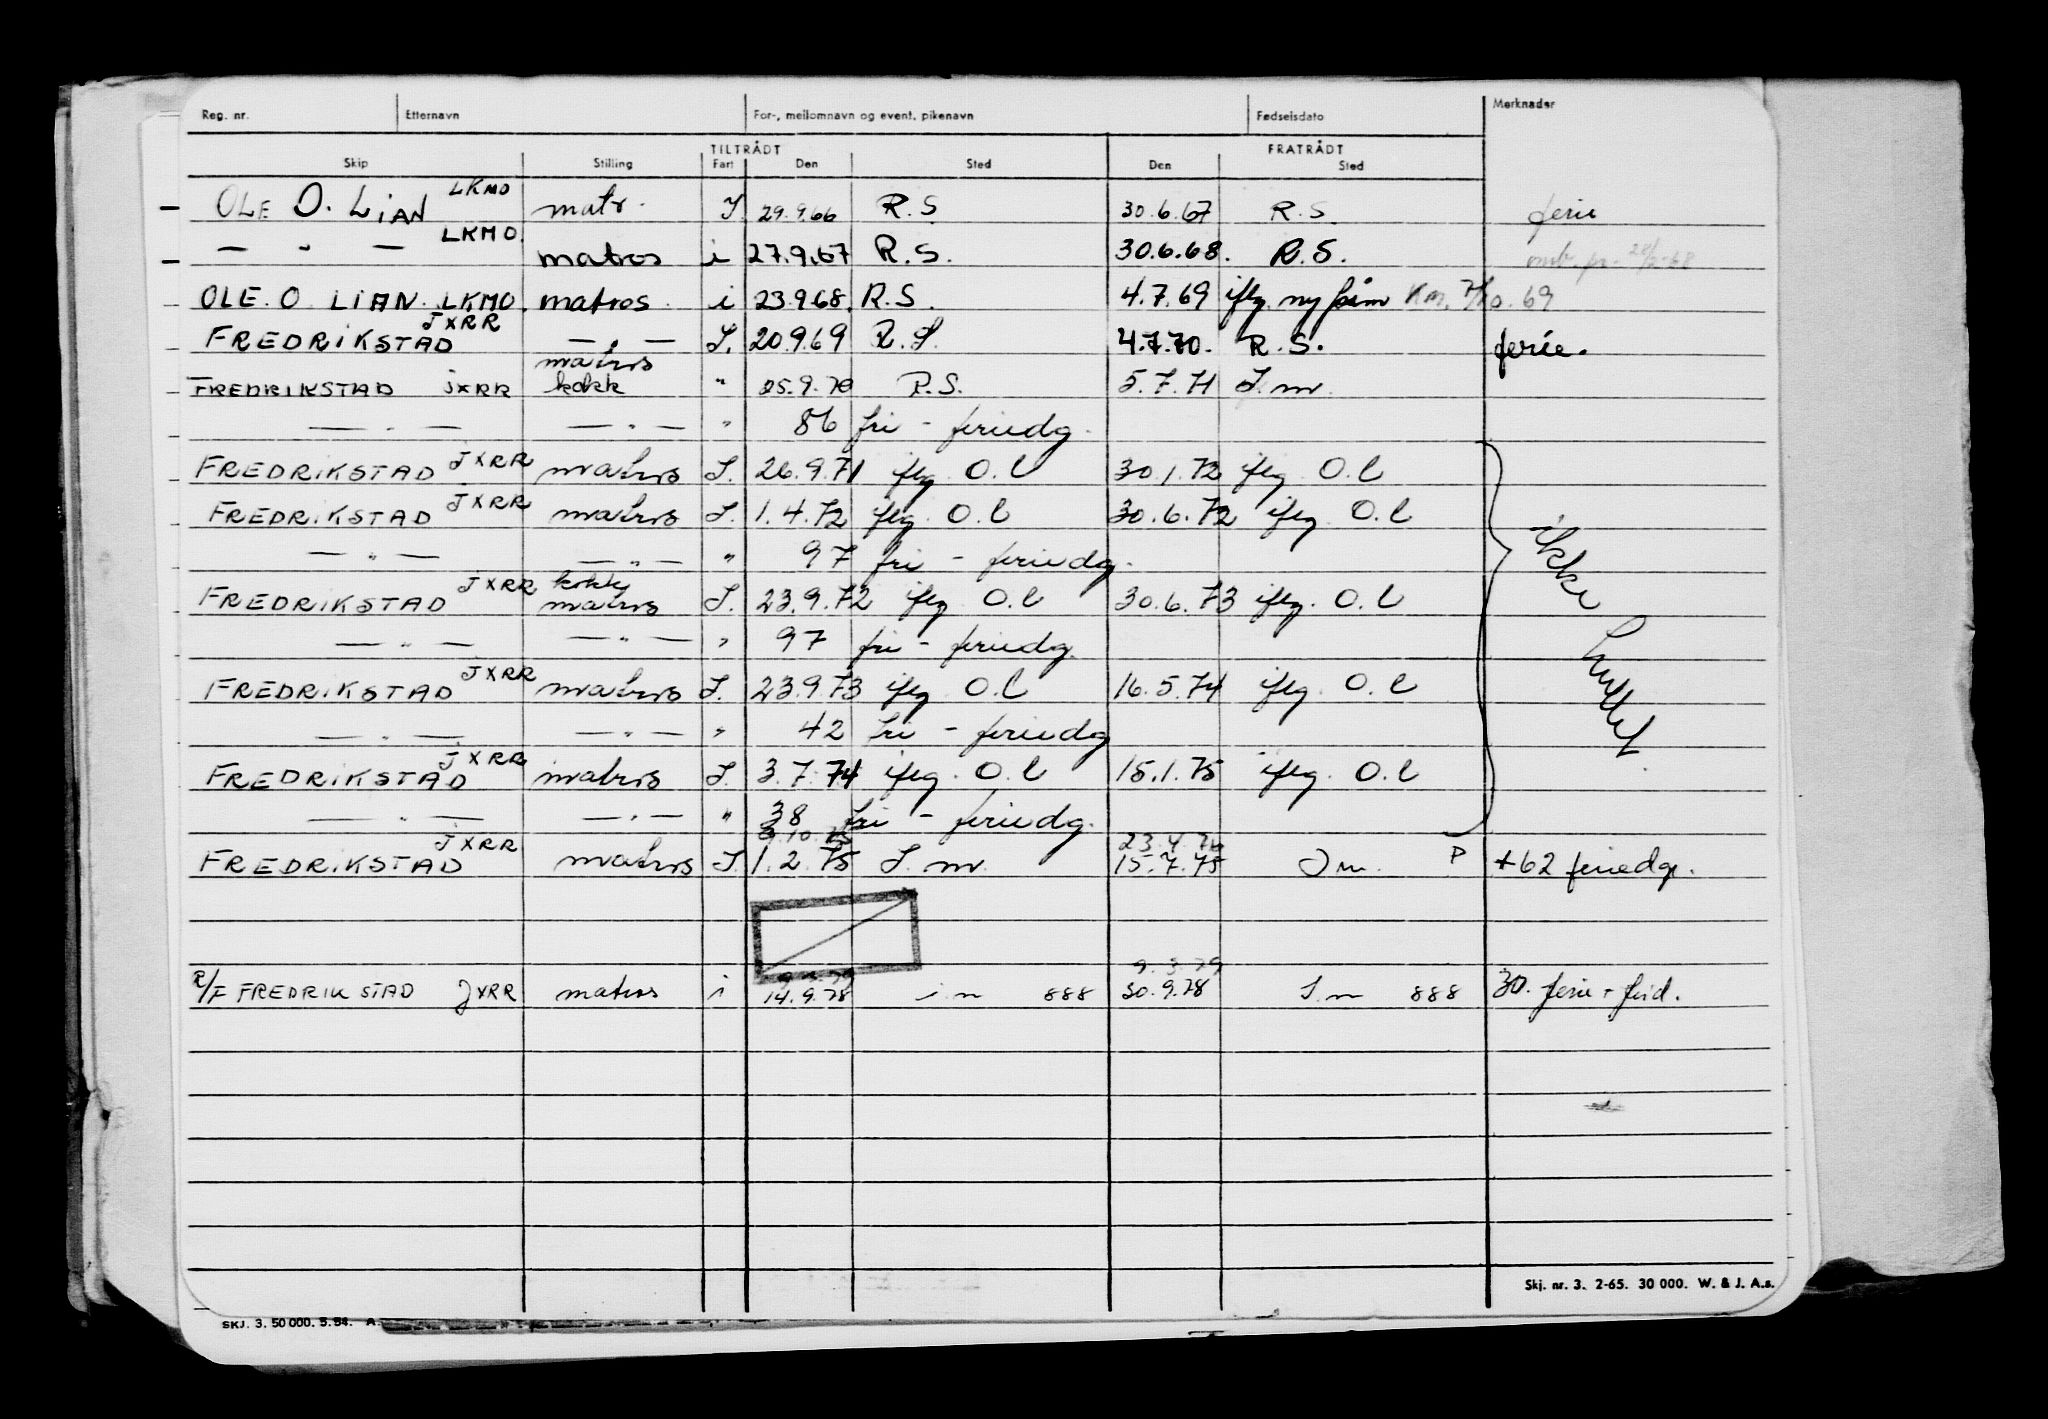 Reg. nr. Etternavn For-, mellomnavn og event. pikenavn Fødselsdato Merknader
TILTRÅDT FRATRÅDT
Skip Stilling Fart Den Sted Den Sted
OLE O. LIAN LKMO matr. I. 29.9.66 R.S 30.6.67 R.S. ferie
— " — LKMO. matros i 27.9.67 R.S. 30.6.68. R.S.
OLE. O. LIAN. LKMO. matros. i 23.9.68. R.S. 4.7.69 iflg. ny
FREDRIKSTAD JXRR — " — I. 20.9.69 R.S. 4.7.70. R.S. ferie.
FREDRIKSTAD JXRR matros kokk " 25.9.70 R.S. 5.7.71 I.m.
— " — — " — " 86 fri - feriedg.
FREDRIKSTAD JXRR matros I. 26.9.71 iflg. O.l 30.1.72 iflg. O.l
FREDRIKSTAD JXRR matros I. 1.4.72 iflg. O.l 30.6.72 iflg. O.l ikke
— " — — " — " 97 fri - feriedg.
FREDRIKSTAD JXRR kokk matros I. 23.9.72 iflg O.l 30.6.73 iflg. O.l
— " — — " — " 97 fri - feriedg.
FREDRIKSTAD JXRR matros I. 23.9.73 iflg O.l 16.5.74 iflg. O.l
— " — — " — " 42 fri - feriedg
FREDRIKSTAD JXRR matros I. 3.7.74 iflg. O.l 15.1.75 iflg. O.l
— " — — " — " 38 fri - feriedg.
23.4.76
FREDRIKSTAD JXRR matros I. 1.2.75 I.m. 15.7.75 I m. P +62 feriedgr.
9.3.79
R/F FREDRIKSTAD JXRR matros i 14.9.78 i.m 888 30.9.78 I.m 888 30. ferie + frid.
Skj. nr. 3. 2-65. 30 000. W. & J. A.s.
SKJ. 3. 50 000. 5.54. A.